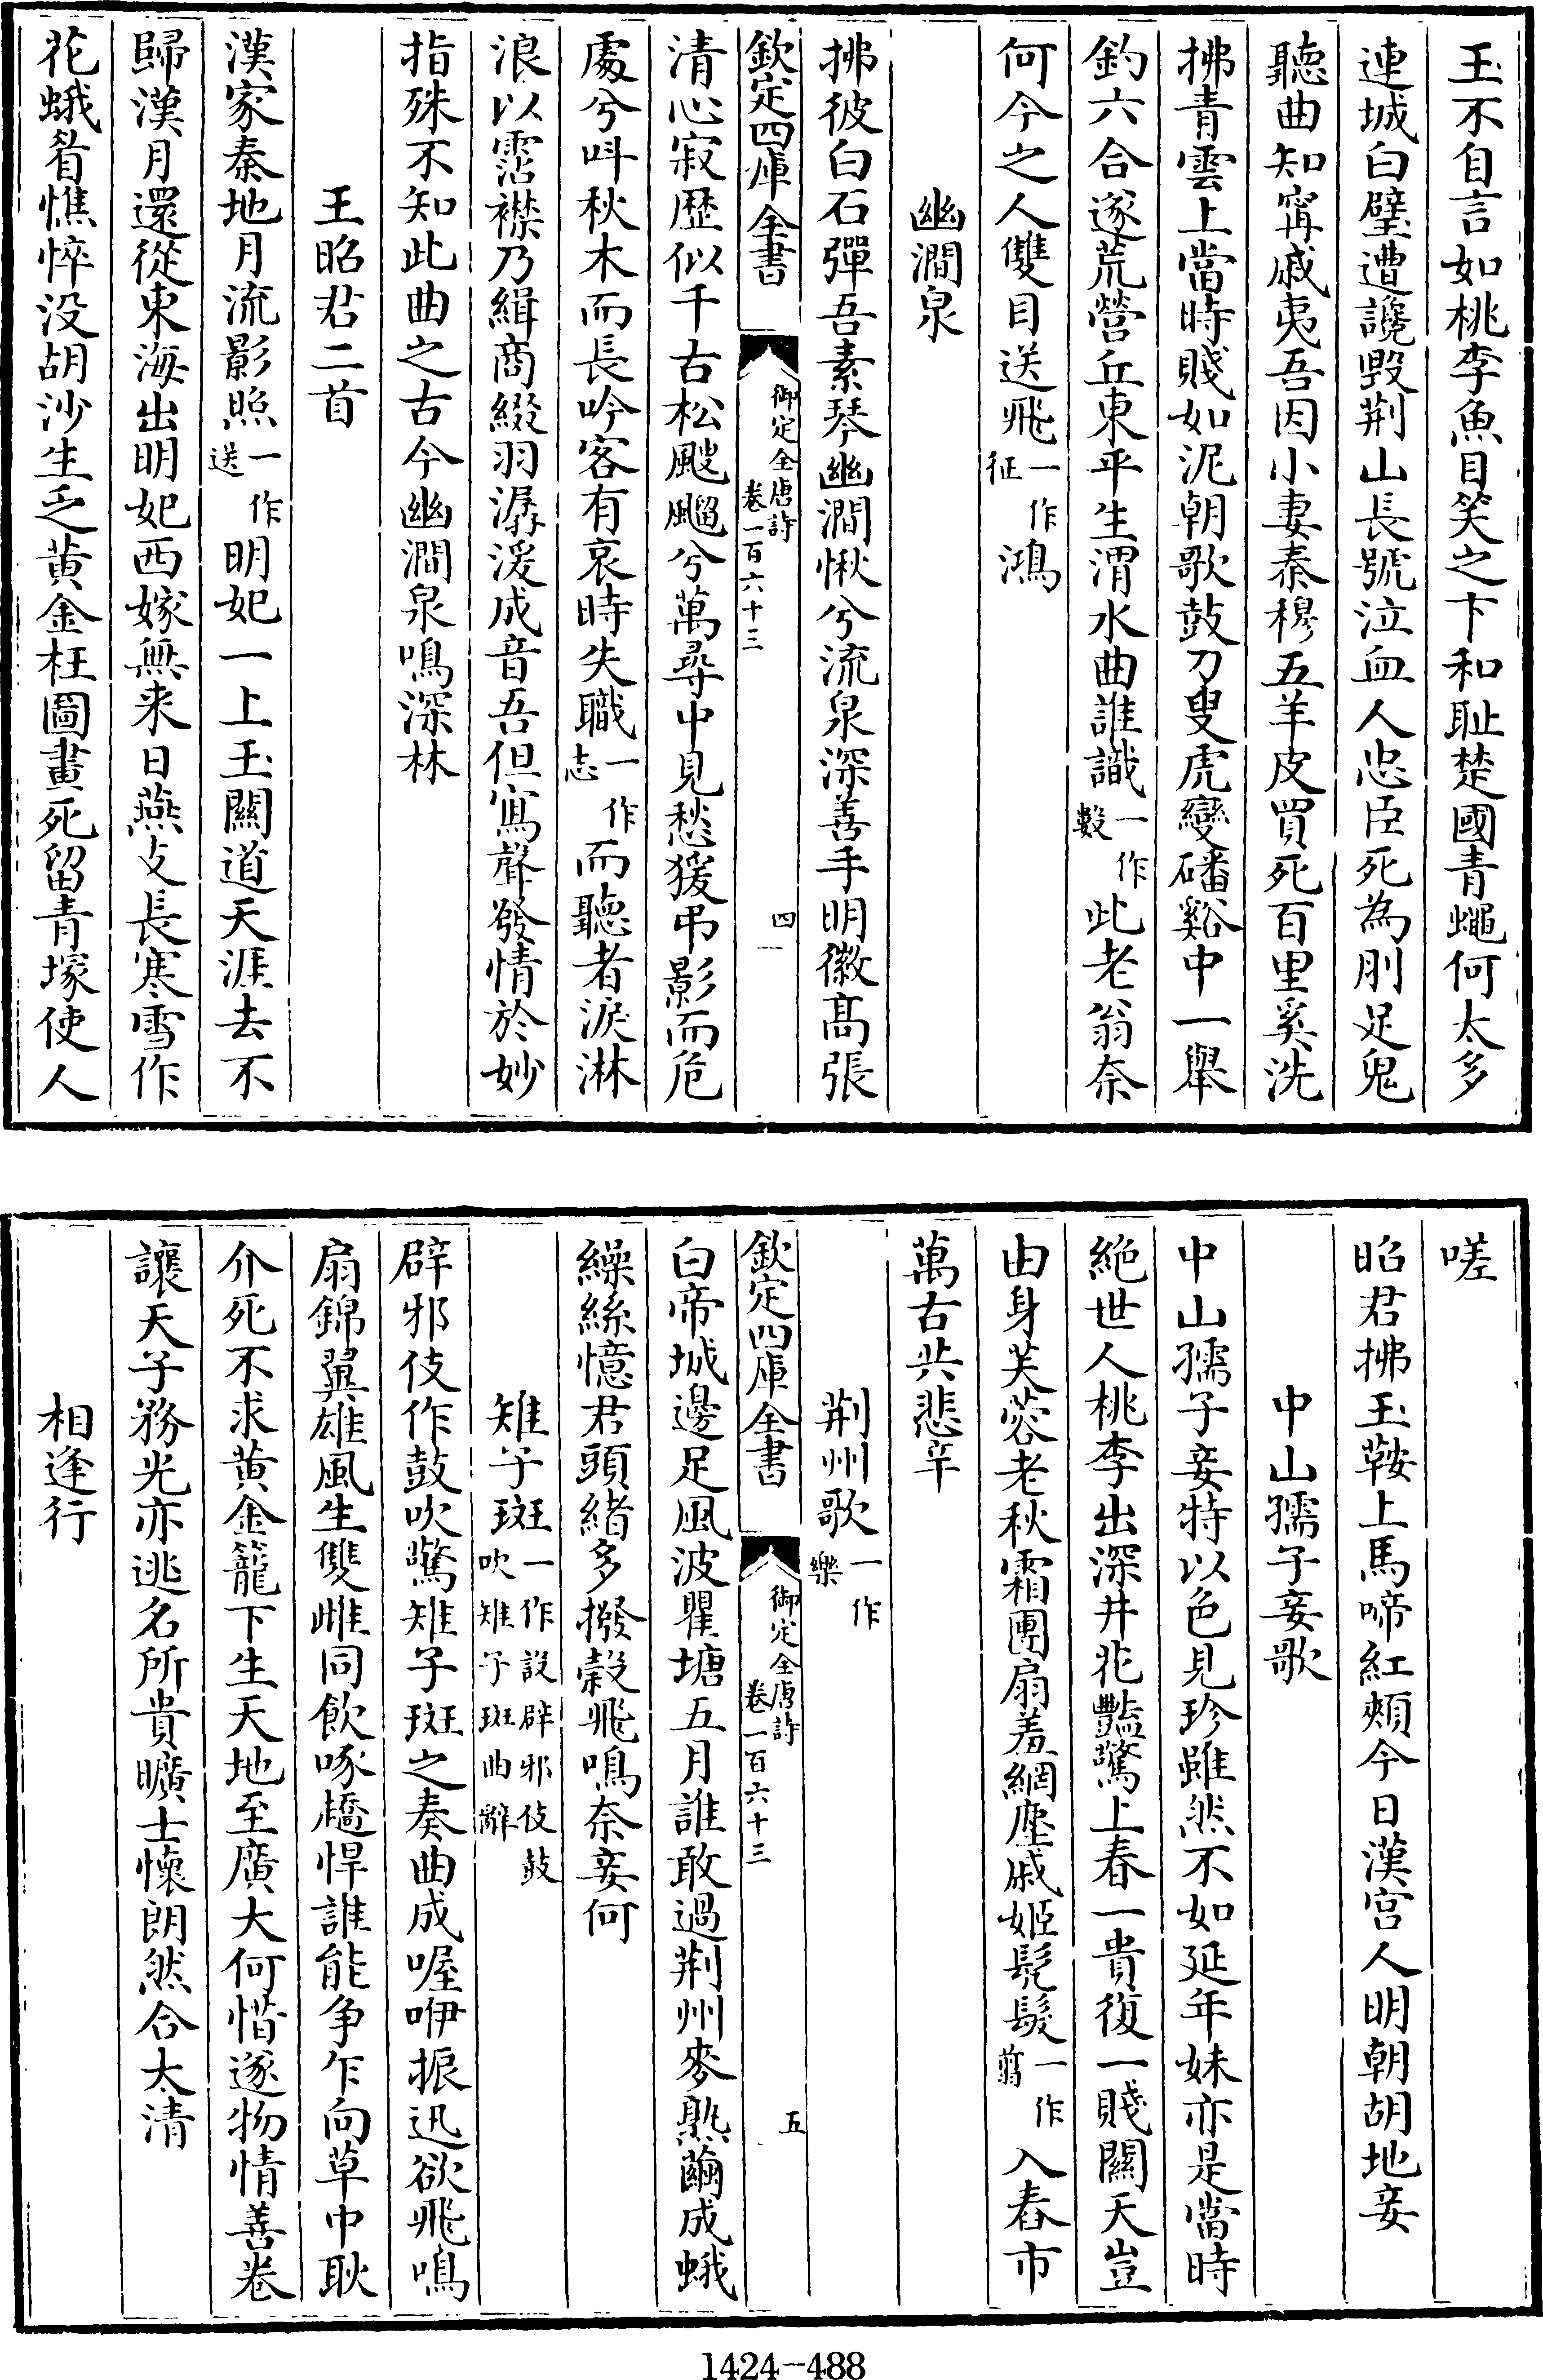 玉不自言如桃李魚目笑之卞和耻楚國青蠅何太多
連城白璧遭讒毁荆山長號泣血人忠臣死為刖足鬼
聽曲知甯戚夷吾因小妻秦穆五羊皮買死百里奚洗
拂青雲上當時賤如泥朝歌鼓刀叟虎變磻谿中一舉
釣六合遂荒營丘東平生渭水曲誰識一作數此老翁奈
何今之人雙目送飛一作征鴻
幽澗泉
拂彼白石彈吾素琴幽澗愀兮流泉深善手明徽髙張
欽定四庫全書
御定全唐詩
卷一百六十三
四
清心寂歴似千古松颼飀兮萬尋中見愁猨弔影而危
處兮呌秋木而長吟客有哀時失職一作志而聽者淚淋
浪以霑襟乃緝商綴羽潺湲成音吾但寫聲發情於妙
指殊不知此曲之古今幽澗泉鳴深林
王昭君二首
漢家秦地月流影照一作送明妃一上玉關道天涯去不
歸漢月還從東海出明妃西嫁無来日燕支長寒雪作
花蛾眉憔悴没胡沙生乏黄金枉圖畫死留青塚使人
嗟
昭君拂玉鞍上馬啼紅頰今日漢宫人明朝胡地妾
中山孺子妾歌
中山孺子妾特以色見珍雖然不如延年妹亦是當時
絶世人桃李出深井花豔驚上春一貴復一賤關天豈
由身芙蓉老秋霜團扇羞網塵戚姬髠髮一作翦入舂市
萬古共悲辛
荆州歌一作樂
欽定四庫全書
御定全唐詩
卷一百六十三
五
白帝城邊足風波瞿塘五月誰敢過荆州麥熟繭成蛾
繰絲憶君頭緒多撥榖飛鳴奈妾何
雉子斑一作設辟邪伎鼓吹雉子斑曲辭
辟邪伎作鼓吹驚雉子斑之奏曲成喔咿振迅欲飛鳴
扇錦翼雄風生雙雌同飲啄趫悍誰能争乍向草中耿
介死不求黄金籠下生天地至廣大何惜遂物情善卷
讓天子務光亦逃名所貴曠士懷朗然合太清
相逢行
1424-488